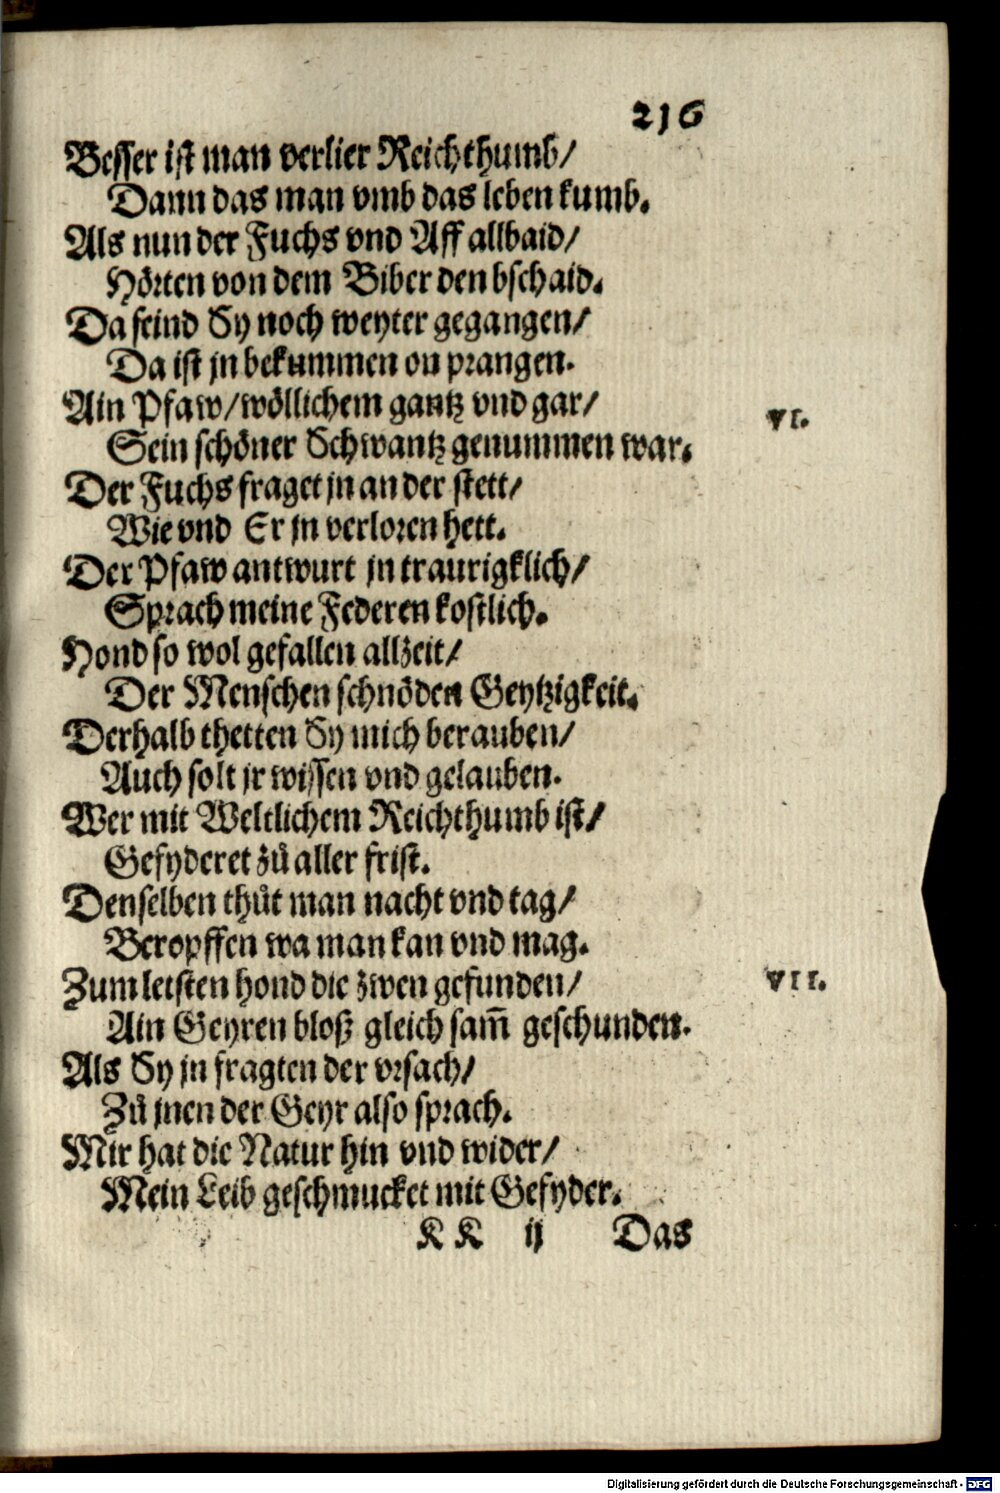 216
Besser ist man verlier Reichthumb/
Dann das man vmb das leben kumb.
Als nun der Fuchs vnd Aff allbaid/
Hörten von dem Biber den bschaid.
Da seind Sy noch weyter gegangen/
Da ist jn bekummen on prangen.
Ain Pfaw/wöllichem gantz vnd gar/
VI.
Sein schöner Schwantz genummen war.
Der Fuchs fraget jn an der stett/
Wie vnd Er jn verloren hett.
Der Pfaw antwurt jn traurigklich/
Sprach meine Federen kostlich.
Hond so wol gefallen allzeit/
Der Menschen schnöden Geytzigkeit.
Derhalb thetten Sy mich berauben/
Auch solt jr wissen vnd gelauben.
Wer mit Weltlichem Reichthumb ist/
Gefyderet zů aller frist.
Denselben thůt man nacht vnd tag/
Beropffen wa man kan vnd mag.
Zum letsten hond die zwen gefunden/
VII.
Ain Geyren bloß gleich sam̃ geschunden.
Als Sy jn fragten der vrsach/
Zů jnen der Geyr also sprach.
Mir hat die Natur hin vnd wider/
Mein Leib geschmucket mit Gefyder.
KK ij Das
Digitalisierung gefördert durch die Deutsche Forschungsgemeinschaft - DFG